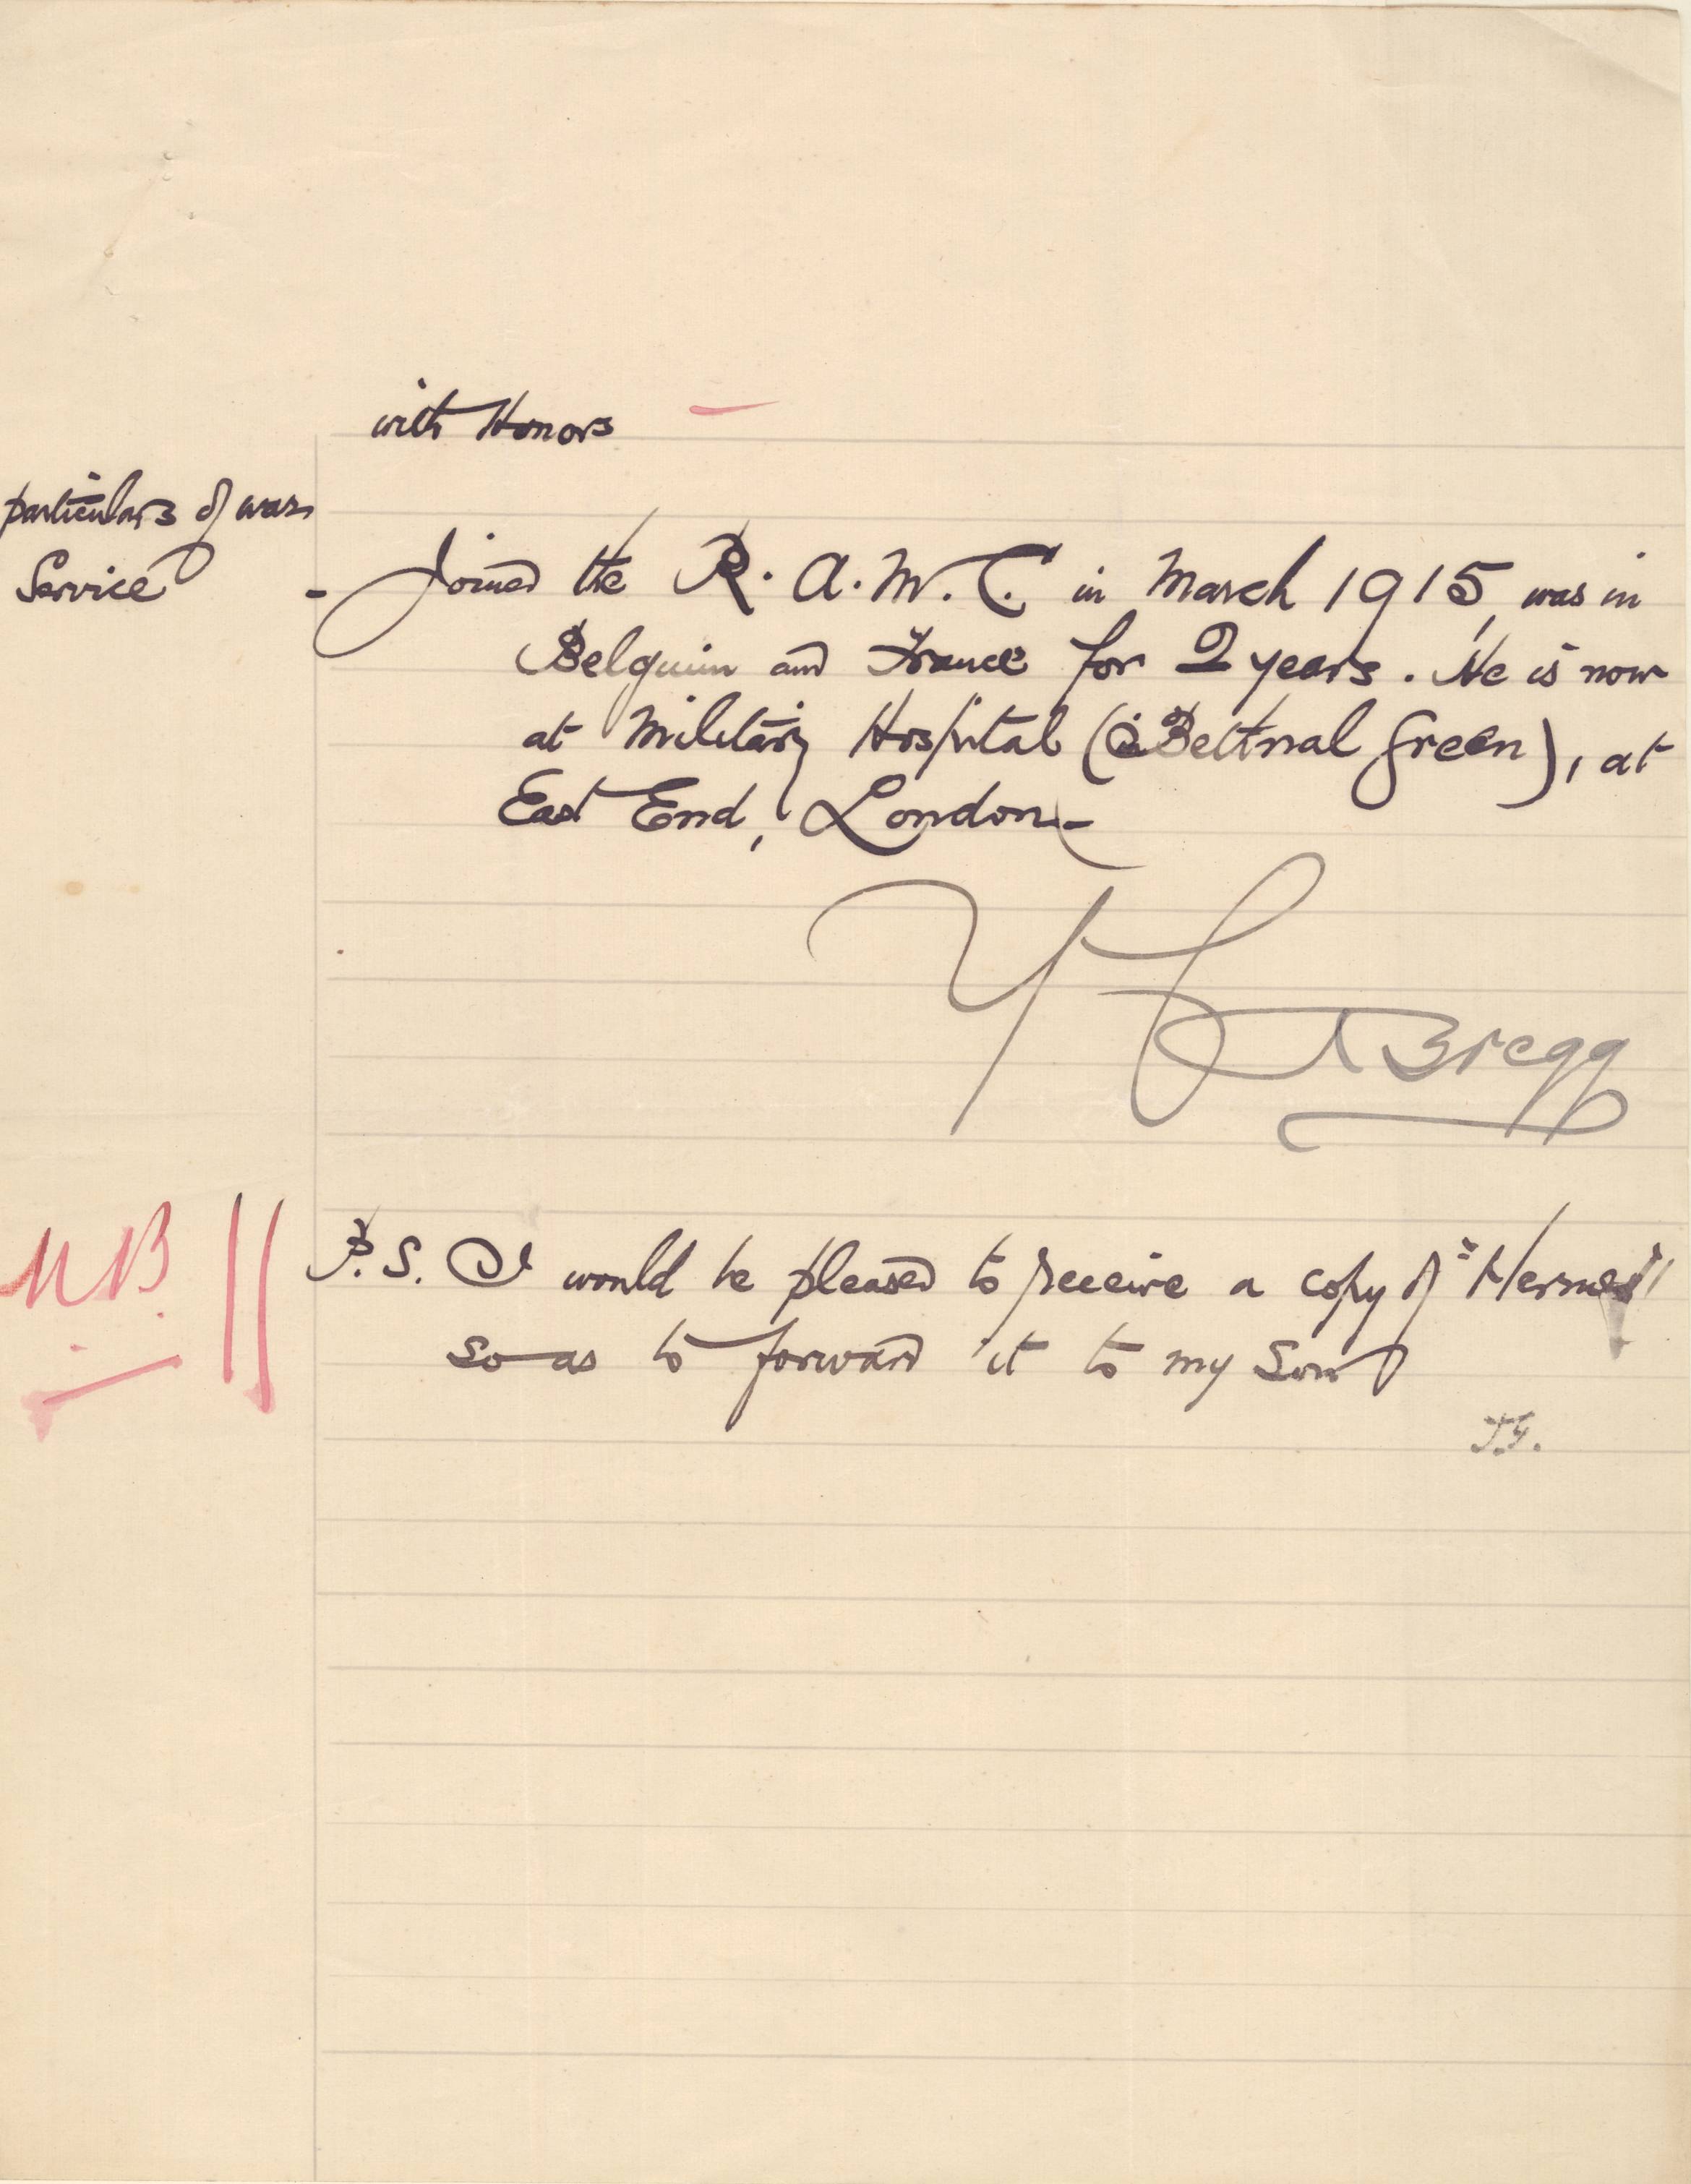 with Honors
particulars of war
Service - Joined the R. A. M. C. in March 1915, was in
Belguim and France for 2 years. He is now
at Military Hospital (Bettnal Green), at
East End, London -
Bregg
NB P. S. I would be pleased to receive a copy of "Hermes"
so as to forward it to my Son